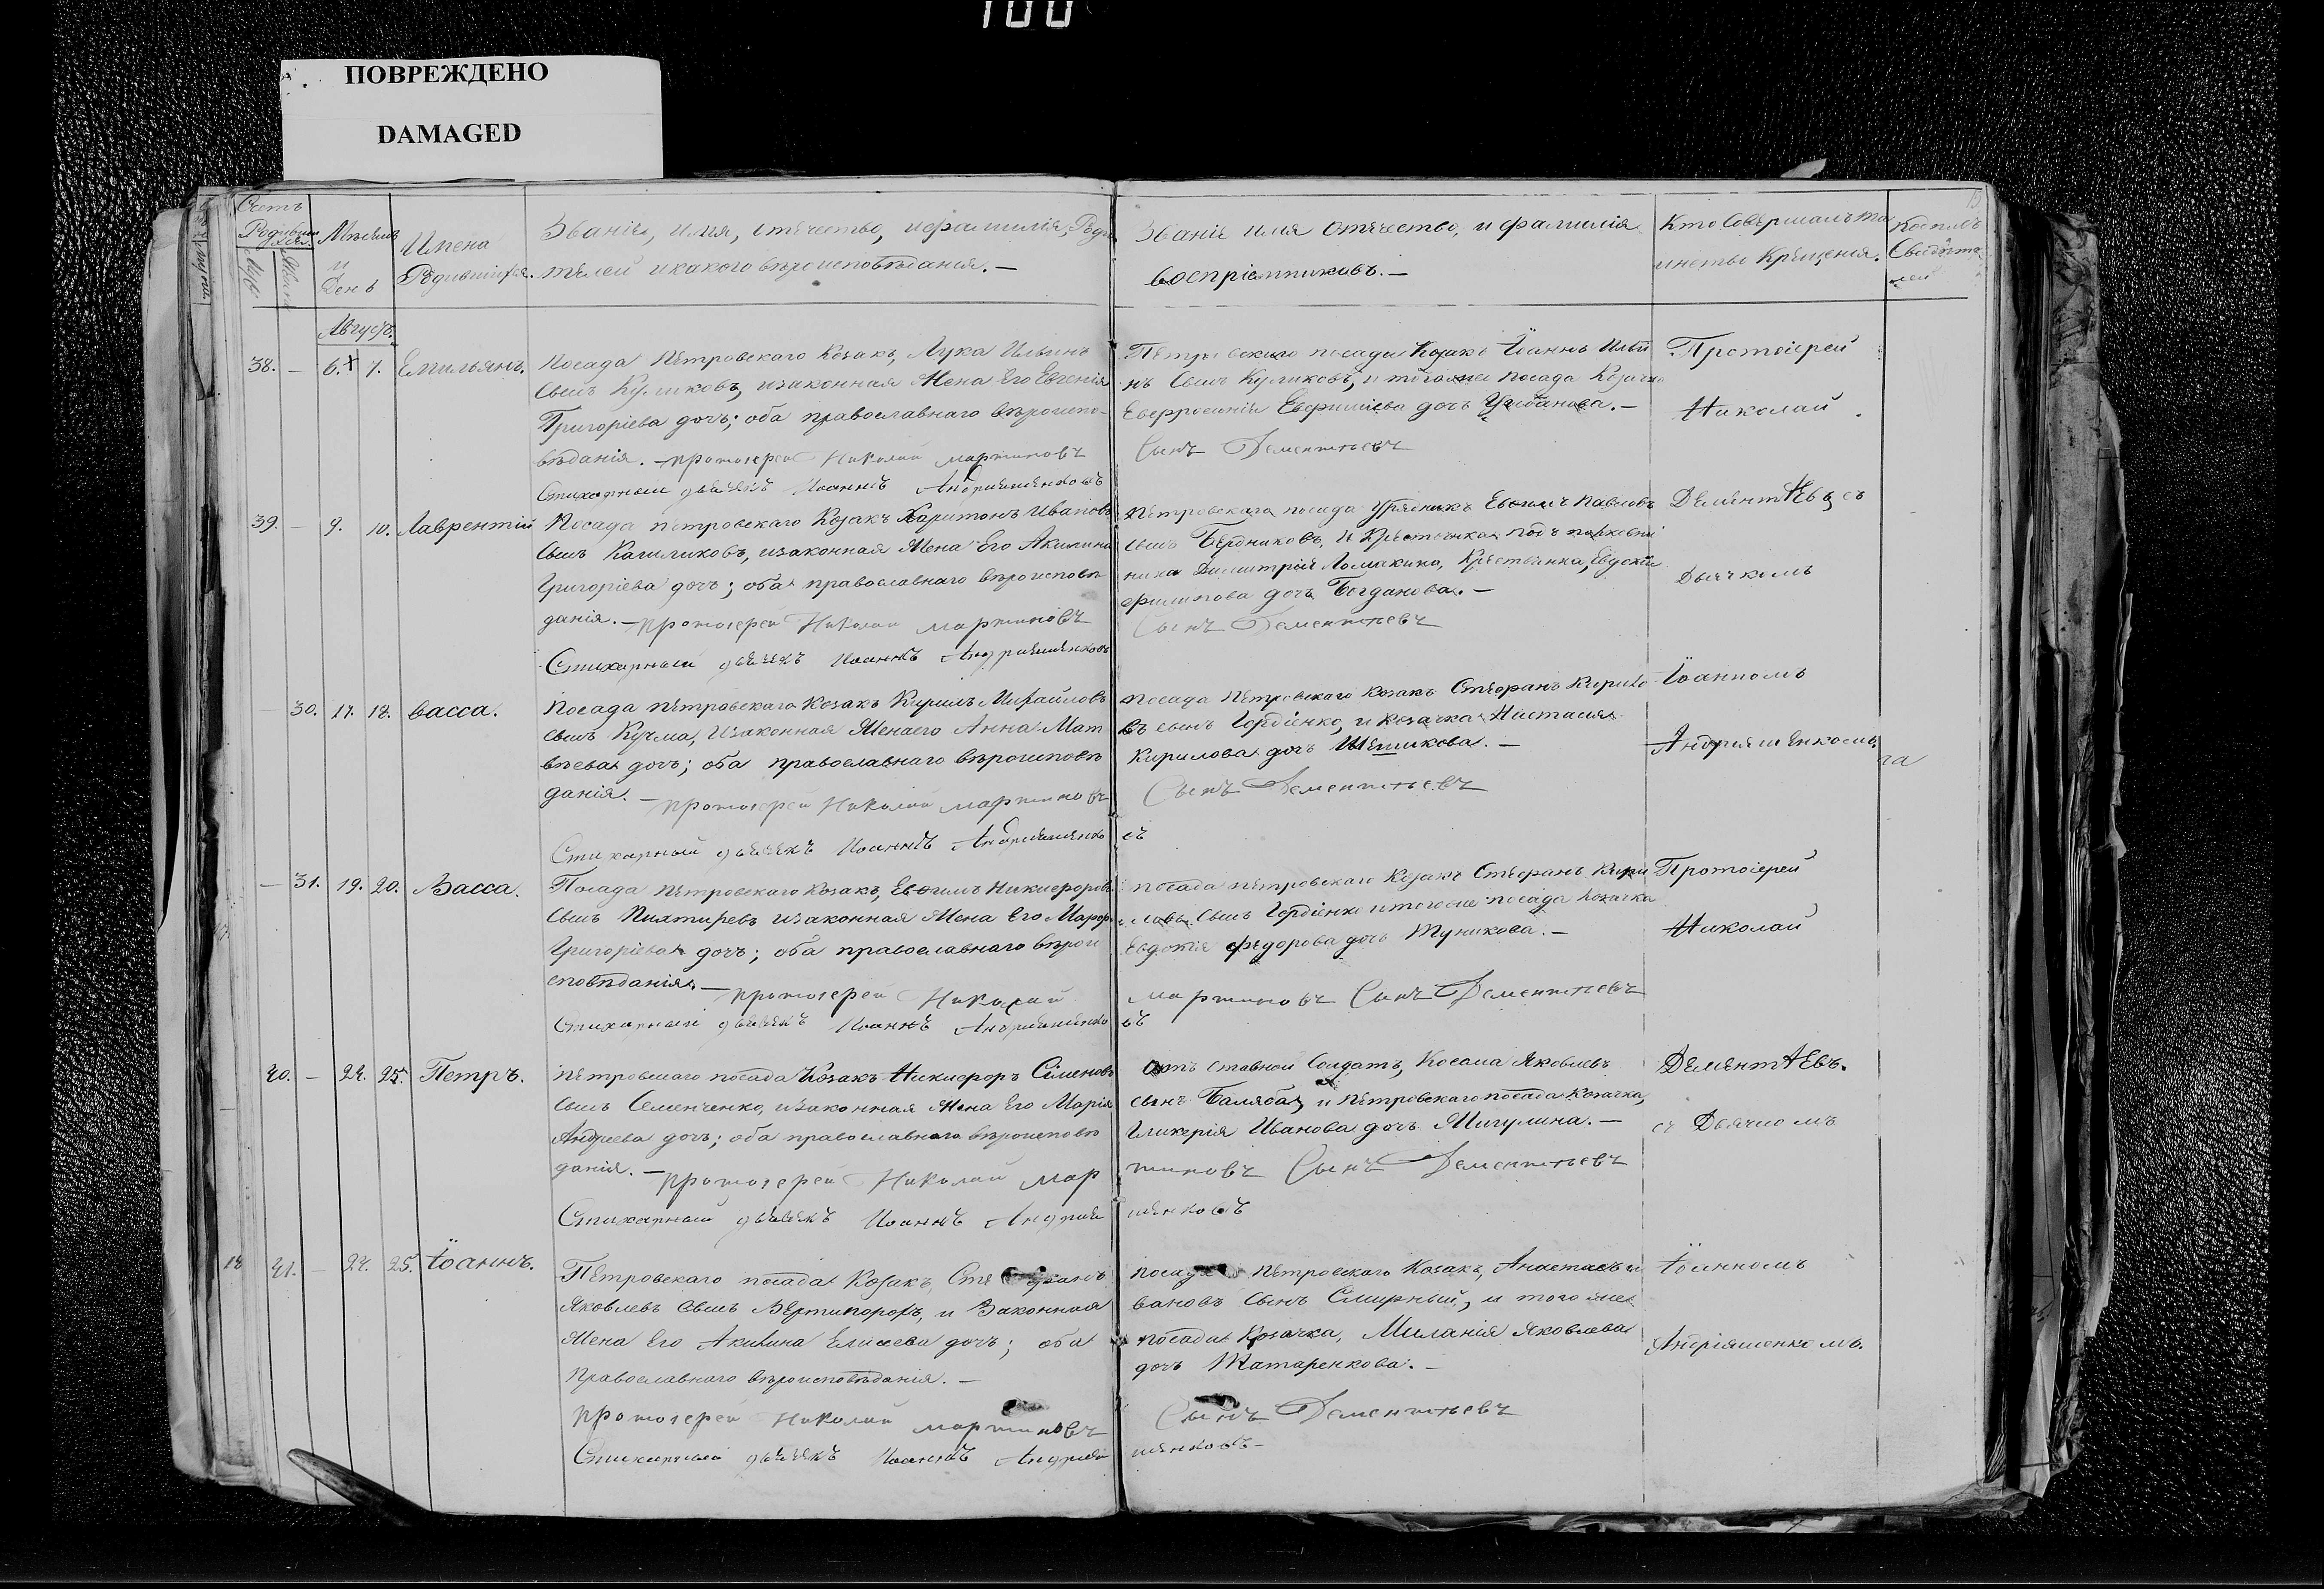 100
ПОВРЕЖДЕНО
DAMAGED
Счетъ
Родивших
Мѣсяцъ
и
День
Имена
Родившихся.
Званіе, имя, отчество, и фамилія, Роди
телей и какого вѣроисповѣданія. —
Званіе имя отчество, и фамилія
воспріемниковъ. —
Кто Совершалъ та
инство Крещенія.
Свидѣте
лей
Август.
38. — 6. 7. Емильянъ.
Посада Петровскаго Козакъ, Лука Ильинъ
Сынъ Куликовъ, и законная Жена Его Евгенія
Григоріева дочь; оба православнаго вѣроиспо-
вѣданія. — протоіерей Николай мартиновъ
Стихарный дьячекъ Иоаннъ Андріяшенковъ
Петровскаго посада Козакъ Іоаннъ Ильи
нъ Сынъ Куликовъ, и того же посада Козачка
Евфросинія Евфиміева дочь —
Сынъ Дементьевъ
Протоіерей
Николай
39. — 9. 10. Лаврентій
Посада петровскаго Козакъ Харитонъ Ивановъ
Сынъ и законная Жена Его Акилина
Григоріева дочь; оба православнаго вѣроисповѣ
данія. — протоіерей Николай мартиновъ
Стихарный дьячекъ Иоаннъ Андріяшенковъ
Петровскаго посада Урядникъ Евфимъ Павловъ
Сынъ Бердниковъ, и подъ полковни
ника Димитрія Ломакина, Крестьянка, Евдокія
филипова дочь Богданова. —
Сынъ Дементьевъ
ДемѣнтѣЕвъ, съ
Дьячкомъ
— 30. 17. 18. васса.
Посада петровскаго Козакъ Кирилъ Михайловъ
сынъ Кучма, и законная Жена его Анна Мат
вѣева дочь; оба православнаго вѣроисповѣ
данія. — протоіерей Николай мартиновъ
Стихарный дьячекъ Иоаннъ Андріяшенко
посада Петровскаго Козакъ Стефанъ Кирило
въ сынъ Гордіенко, и козачка Настасія
Кирилова дочь Шешикова. —
Сынъ Дементьевъ
въ
Іоанномъ
Андріяшенкомъ.
— 31. 19. 20. Васса.
Посада петровскаго Козакъ, Евфимъ Никифоровъ
Сынъ Пихтиревъ и законная Жена Его Марфа
Григоріева дочь; оба православнаго вѣрои
сповѣданія. — протоіерей Николай
Стихарный дьячекъ Иоаннъ Андріяшенко
посада петровскаго Козакъ Стефанъ Кири
ловъ Сынъ Гордіенко и того же посада козачка
Евдокія федорова дочь Туникова. —
мартиновъ Сынъ Дементьевъ
въ
Протоіерей
Николай
40. — 24. 25. Петръ.
петровскаго посада Козакъ Никифоръ Сѣменовъ
Сынъ Семенченко, и законная Жена Его Марія
Андреева дочь; оба православнаго вѣроисповѣ
данія. — протоіерей Николай мар
Стихарный дьячекъ Иоаннъ Андрія
Отъ ставной Солдатъ, Косма Яковлевъ
сынъ Баляба, и петровскаго посада козачка,
Гликерія Иванова дочь Мигулина. —
тиновъ Сынъ Дементьевъ
шенковъ
ДемѣнтѣЕвъ.
съ Дьячкомъ
41. — 24. 25. Іоаннъ.
Петровскаго посада Козакъ, Стефанъ
Яковлевъ Сынъ Вертипорохъ, и Законная
Жена Его Акилина Елисеева дочь; оба
Православнаго вѣроисповѣданія. —
протоіерей Николай мартиновъ
Стихарный дьячекъ Иоаннъ Андрія
посада петровскаго Козакъ, Анастасъ и
вановъ Сынъ Смирный, и того же
посада козачка, Миланія Яковлева
дочь Татаренкова. —
Сынъ Дементьевъ
шенковъ
Іоанномъ
Андріяшенкомъ.